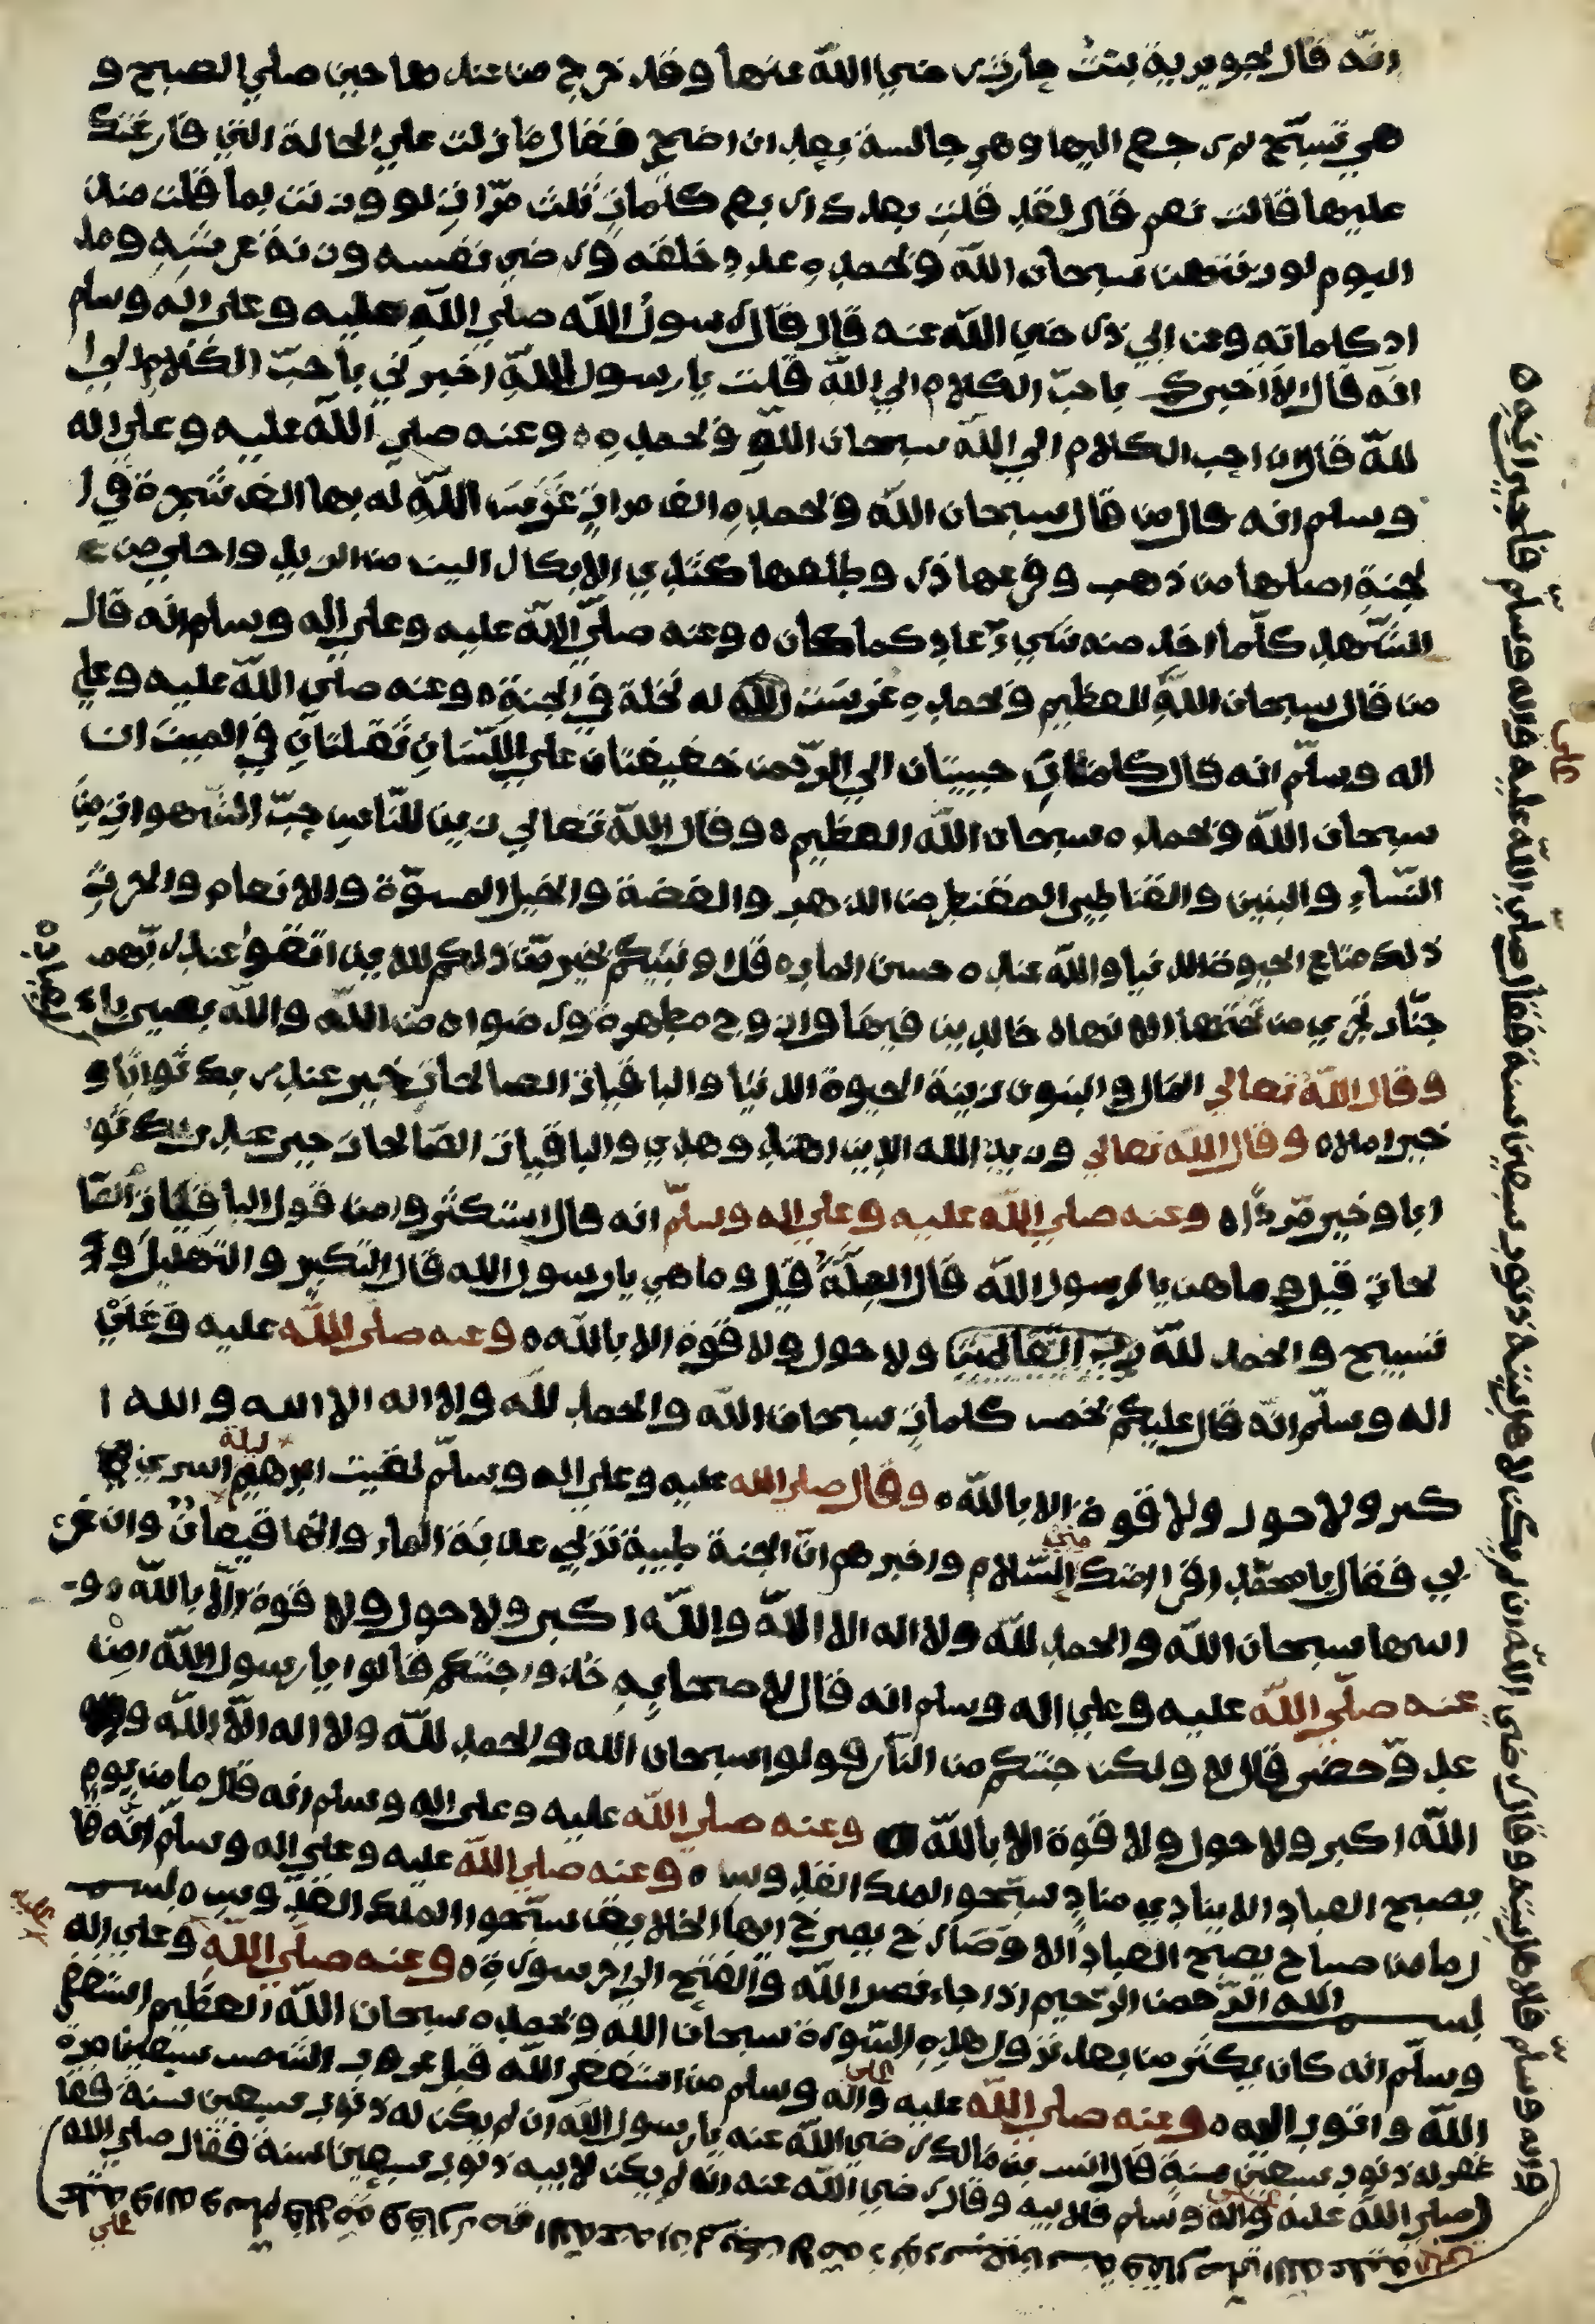 انّه قال لجويرية بنت حارث رضي الله عنها وقد خرج من عندها حين صلي الصبح و
هي تسبّح ثم رجع اليها وهي جالسة بعد ان اضحي فقال ما زلت علي الحالة التي فارقتك
عليها قالت نعم قال لقد قلت بعدك اربع كلمات ثلث مرّات لو وزنت بما قلت منذ
اليوم لوزنتهن سبحان الله وبحمده عدد خلقه ورضي نفسه وزنة عرشه ومد
اد كلماته وعن ابي ذر رضي الله عنه قال قال رسول الله صلي الله عليه وعلي اله وسلم
انّه قال الا اخبرك باحبّ الكلام الي الله قلت يا رسول الله اخبرني باحبّ الكلام الي ا
لله قال ان احب الكلام الي الله سبحان الله وبحمده ه وعنه صلي الله عليه وعلي اله
وسلم انه قال من قال سبحان الله وبحمده الف مرات غرست الله له بها الف شجرة في ا
لجنة اصلها من ذهب وفرعها در وطلعها كثدي الابكار الين من الزبد واحلي من
الشّهد كلّما اخذ منه شيء عاد كما كان ه وعنه صلّي الله عليه وعلي اله وسلم انه قال
من قال سبحان الله العظيم وبحمده غرست الله له نخلة في الجنة ه وعنه صلي الله عليه وعلي
اله وسلّم انه قال كلمتان حبيبتان الي الرّحمن خفيفتان علي اللّسان ثقيلتان في الميزان
سبحان الله وبحمده سبحان الله العظيم ه وقال الله تعالي زين للنّاس حبّ الشّهوات من
النّساء والبنين والقناطير المقنطر من الذهب والفضة والخيل المسوّمة والانعام والحرث
ذلك متاع الحيوة الدنيا والله عنده حسن المآب ه قل اونبيكم بخير مّن ذلكم للذين اتقوا عند ربّهم
جنّات تجري من تحتها الانهار خالدين فيها وازوج مطهرة ورضوان من الله والله بصير باء
لعباد ه
وقال الله تعالي المال والبنون زينة الحيوة الدنيا والباقيات الصالحات خير عند ربك ثوابا و
خير املا ه وقال الله تعالي ويزيد الله الذين اهتدوا هدي والباقيات الصّالحات خير عند ربك ثو
ابا وخير مّردّا ه وعنه صلي الله عليه وعلي اله وسلّم انه قال استكثروا من قول الباقيات الصّا
لحات قيل وما هن يا رسول الله قال الملّة قيل وما هي يا رسول الله قال التكبير والتهليل وا
تسبيح والحمد لله رب العالمين ولا حول ولا قوة الا بالله ه وعنه صلي الله عليه وعلي
اله وسلّم انّه قال عليكم بخمس كلمات سبحان الله والحمد لله ولا اله الا الله والله ا
كبر ولا حول ولا قوة الا بالله ه وقال صلي الله عليه وعلي اله وسلّم لقيت ابرهيم ليلة اسري
بي فقال يا محمّد اقرا امّتك منّي السّلام واخبرهم انّ الجنة طيبة تربي عذبة الماء وانّها قيعان وان غر
اسها سبحان الله والحمد لله ولا اله الا الله والله اكبر ولا حول ولا قوة الّا بالله ه و
عنه صلّي الله عليه وعلي اله وسلم انه قال لاصحابه خذوا جنتكم قالوا يا رسول الله امن
عدوّ حضر قال لا ولكن جنتكم من النّار قولوا سبحان الله والحمد لله ولا اله الّا الله و
الله اكبر ولا حول ولا قوة الا بالله ه وعنه صلي الله عليه وعلي اله وسلم انه قال ما من يوم
يصبح العباد الا ينادي مناد سبّحوا الملك القدوس ه وعنه صلي الله عليه وعلي اله وسلم انّه قا
ل ما من صباح يصبح العباد الا وصارخ يصرخ ايها الخلايق سبّحوا الملك القدّوس ه
بسم الله الرّحمن الرّحيم اذا جاء نصر الله والفتح الي اخر سورة ه وعنه صلّي الله وعلي اله
وسلّم انه كان يكثر من بعد نزول هذه السّورة سبحان الله وبحمده سبحان الله العظيم استغفر
الله واتوب اليه ه وعنه صلي الله عليه وعلي اله وسلم من استغفر الله قبل غروب الشمس سبعين مرة
غفر له ذنوب سبعين سنة قال انس بن مالك رضي الله عنه يا رسول الله ان لم يكن له ذنوب سبعين سنة فقا
(صلي الله عليه وعلي اله وسلم فلابيه وقال رضي الله عنه ان لم يكن لابيه ذنوب سبعين سنة فقال صلي الله)
واله وسلّم فلا هل بيته وقال رضي الله ان لم يكن لاهل بيته ذنوب سبعين سنة فقال صلي الله عليه وعلي اله وسلّم فلجيرانه ه